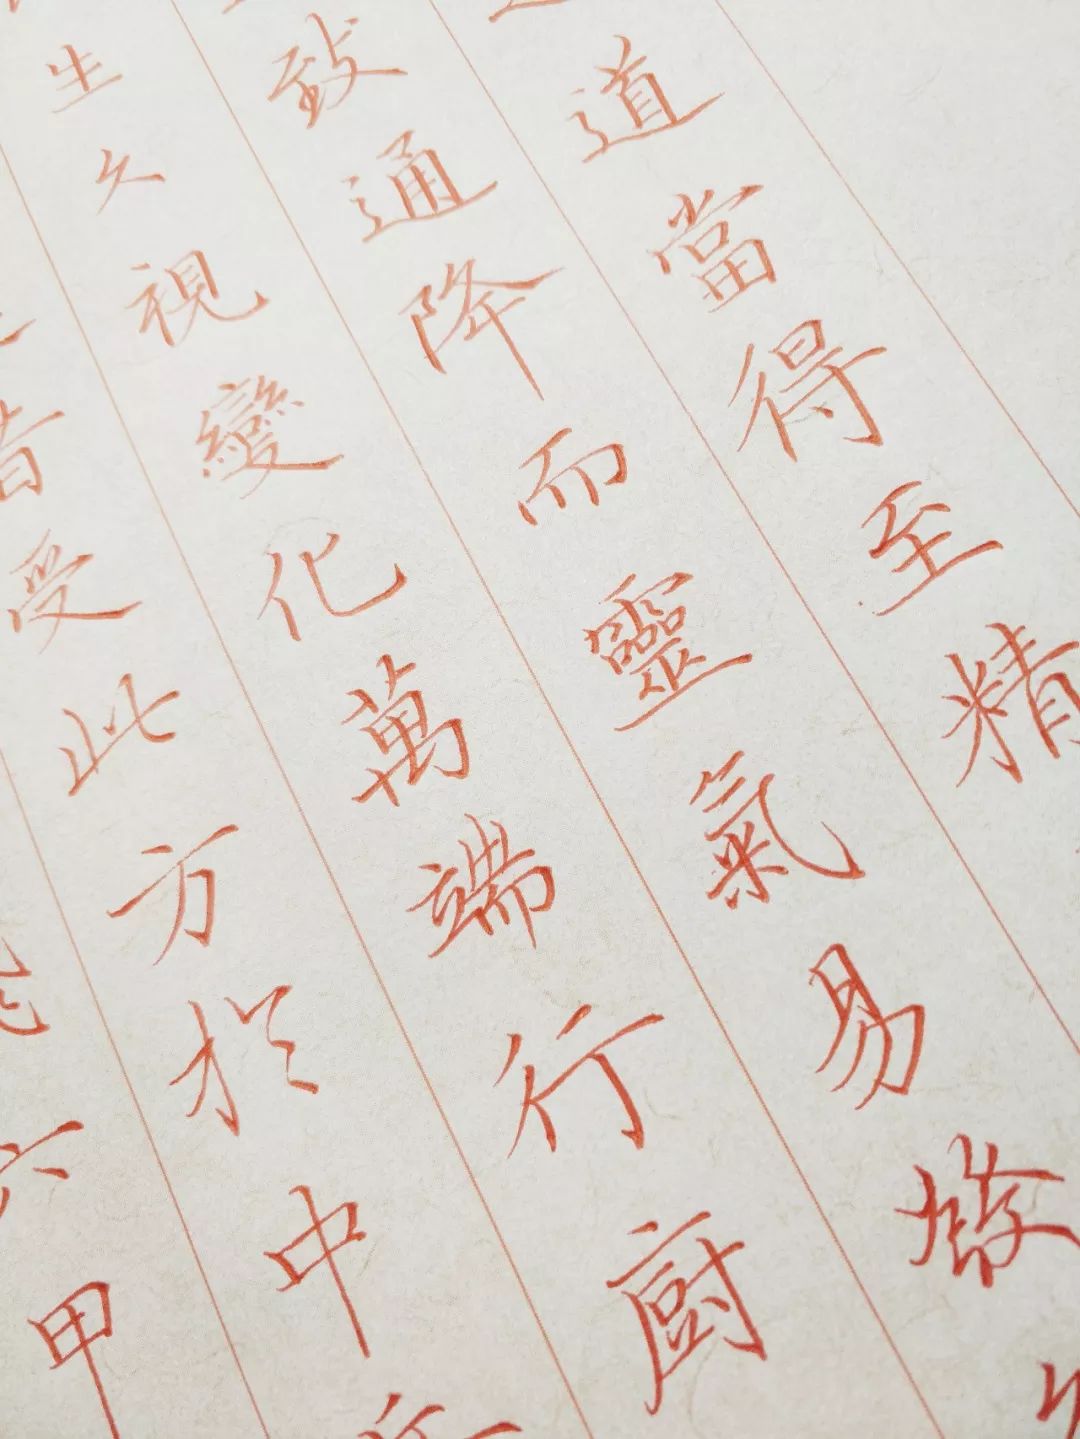 道當得至精
致通降而靈氣易
生久視變化萬端行廚
者受此方於中
六甲